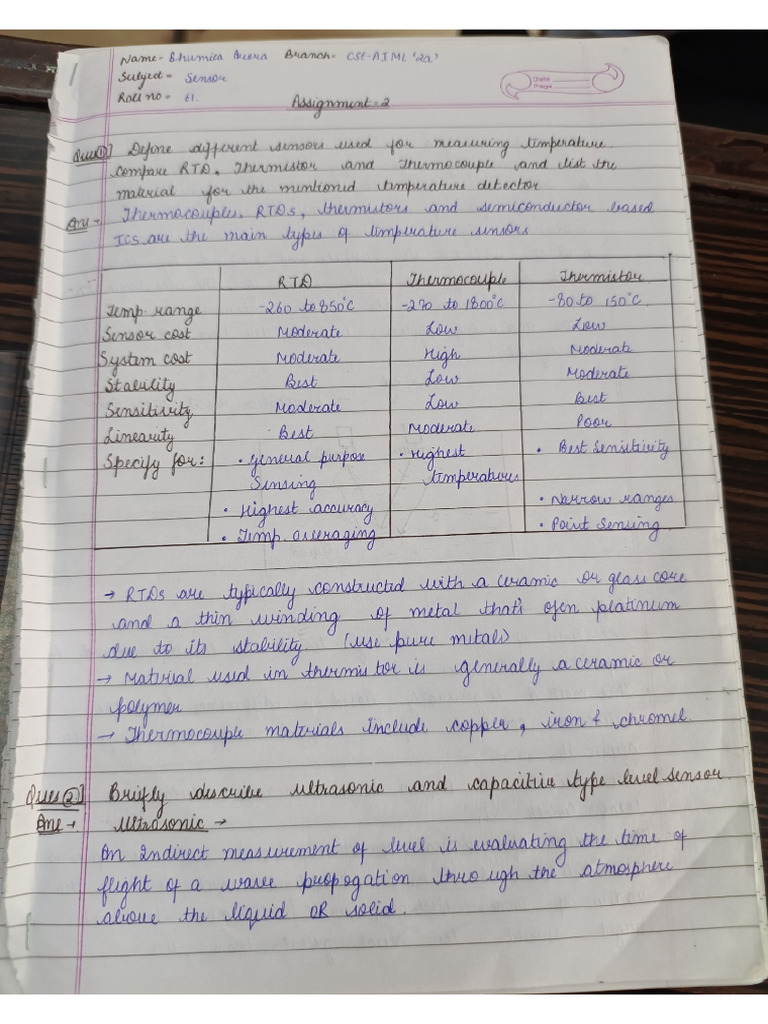 Name - Bhumica Branch - CSE-AIML '2a'
Subject = Sensor
Roll no = 61.
Date
Page
Assignment = 2
Ques 1] Define different sensors used for measuring temperature
compare RTD, Thermistor and thermocouple and list the
material for the mentioned temperature detector
Ans - Thermocouples, RTDs, thermistors and semiconductor based
ICs are the main types of temperature sensors
RTD Thermocouple Thermistor
Temp. range -260 to 850°C -270 to 1800°C -80 to 150°C.
Sensor cost Moderate Low Low
System cost Moderate High Moderate
Stability Best Low Moderate
Sensitivity Moderate Low Best
Linearity Best Moderate Poor
Specify for: • general purpose • Highest • Best Sensitivity
Sensing temperatures
• Narrow ranges
• Highest accuracy
• Point Sensing
• Temp. averaging
→ RTDs are typically constructed with a ceramic or glass core
and a thin winding of metal that's ofen platinum
due to its stability. (use pure metals)
→ Material used in thermistor is generally a ceramic or
polymer
→ Thermocouple materials include copper, iron & chromel.
Ques 2] Briefly describe ultrasonic and capacitive type level sensor.
Ans → Ultrasonic →
An Indirect measurement of level is evaluating the time of
flight of a wave propogation through the atmosphere
above the liquid OR solid.